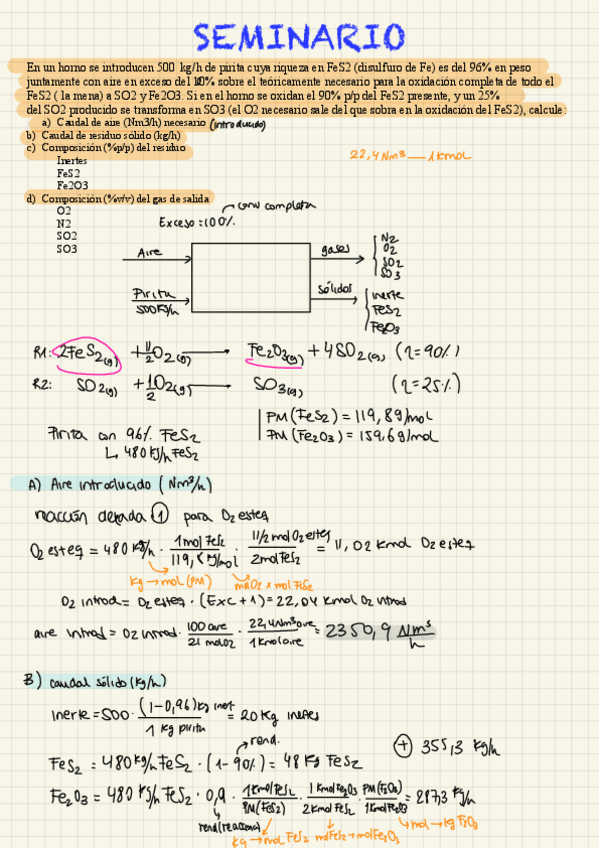 SEMINARIO
En un horno se introducen 500 kg/h de pirita cuya riqueza en FeS2 (disulfuro de Fe) es del 96% en peso
juntamente con aire en exceso del 100% sobre el teóricamente necesario para la oxidación completa de todo el
FeS2 ( la mena) a SO2 y Fe2O3. Si en el horno se oxidan el 90% p/p del FeS2 presente, y un 25%
del SO2 producido se transforma en SO3 (el O2 necesario sale del que sobra en la oxidación del FeS2), calcule:
a) Caudal de aire (Nm3/h) necesario (introducido)
b) Caudal de residuo sólido (kg/h)
c) Composición (%p/p) del residuo
Inertes
FeS2
Fe2O3
22,4 Nm³ — 1 kmol
d) Composición (%v/v) del gas de salida
O2
N2
SO2
SO3
conv completa
Exceso = 100%
Aire
gases
N2
O2
SO2
SO3
Pirita
500Kg/h
sólidos
inerte
FeS2
Fe2O3
R1: 2FeS2(s) + 11/2 O2(g) → Fe2O3(s) + 4SO2(g) (η=90%)
R2: SO2(g) + 1/2 O2(g) → SO3(g) (η=25%)
Pirita con 96% FeS2
↳ 480 kg/h FeS2
PM (FeS2) = 119,8 g/mol
PM (Fe2O3) = 159,6 g/mol
A) Aire introducido (Nm³/h)
reacción deseada ① para O2 esteq
O2 esteq = 480 kg/h · 1 mol FeS2 / 119,8 kg/mol · 11/2 mol O2 esteq / 2 mol FeS2 = 11,02 Kmol O2 esteq
Kg → mol (PM)
mol O2 x mol FeS2
O2 introd = O2 esteq · (Exc + 1) = 22,04 Kmol O2 introd
aire introd = O2 introd · 100 aire / 21 mol O2 · 22,4 Nm³ aire / 1 Kmol aire = 2350,9 Nm³/h
B) caudal sólido (kg/h)
inerte = 500 · (1-0,96) kg inert / 1 kg pirita = 20 kg inertes
rend.
FeS2 = 480 kg/h FeS2 · (1- 90%) = 48 kg FeS2
+ 355,3 kg/h
Fe2O3 = 480 kg/h FeS2 · 0,9 · 1 Kmol FeS2 / PM (FeS2) · 1 Kmol Fe2O3 / 2 Kmol FeS2 · PM (Fe2O3) / 1 Kmol Fe2O3 = 287,3 kg/h
rend (reacciona)
kg → mol FeS2
mol FeS2 → mol Fe2O3
mol → kg Fe2O3